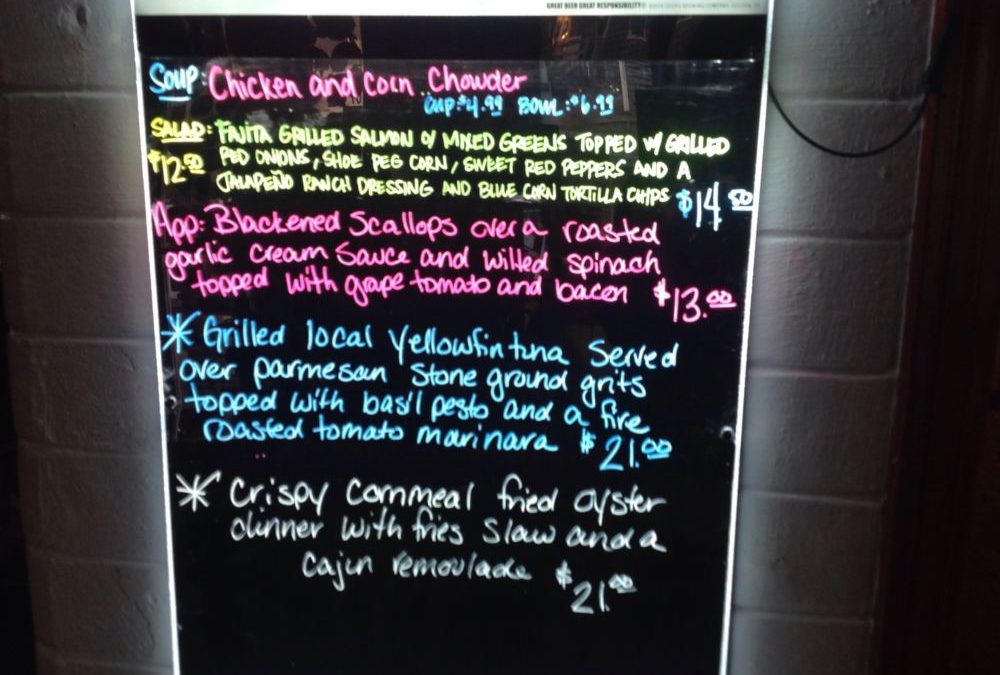 GREAT BEER GREAT RESPONSIBILITY®
Soup: Chicken and Corn Chowder
CUP: $4.99 BOWL: $6.99
SALAD: FAJITA GRILLED SALMON O/ MIXED GREENS TOPPED W/ GRILLED
$12.50 RED ONIONS, SHOE PEG CORN, SWEET RED PEPPERS AND A
JALAPEÑO RANCH DRESSING AND BLUE CORN TORTILLA CHIPS $14.50
App: Blackened Scallops over a roasted
garlic cream sauce and wilted spinach
topped with grape tomato and bacon $13.00
* Grilled local Yellowfin tuna Served
over parmesan Stone ground grits
topped with basil pesto and a fire
roasted tomato marinara $21.00
* Crispy Cornmeal fried oyster
dinner with fries Slaw and a
Cajun remoulade $21.00